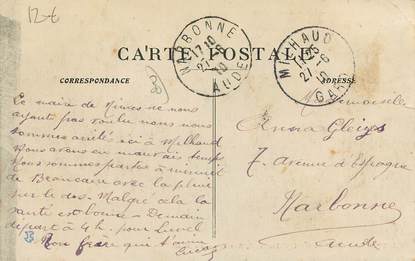 12€
NARBONNE
17-10
27-6
10
AUDE
MILHAUD
27-6
10
GARD
CARTE POSTALE
CORRESPONDANCE
ADRESSE
Le maire de Nimes ne nous
ayant pas voulu nous nous
sommes arrêté ici à Milhaud
Nous avons eu mauvais temps
Nous sommes partis à
de Beaucaire avec la pluie
sur le dos. Malgré cela la
santé est bonne - Demain
départ à 4h. pour Lunel
Ton frère qui t'aime
Mademoiselle
Anna Gleizes
7 Avenue d'Espagne
Narbonne
Aude